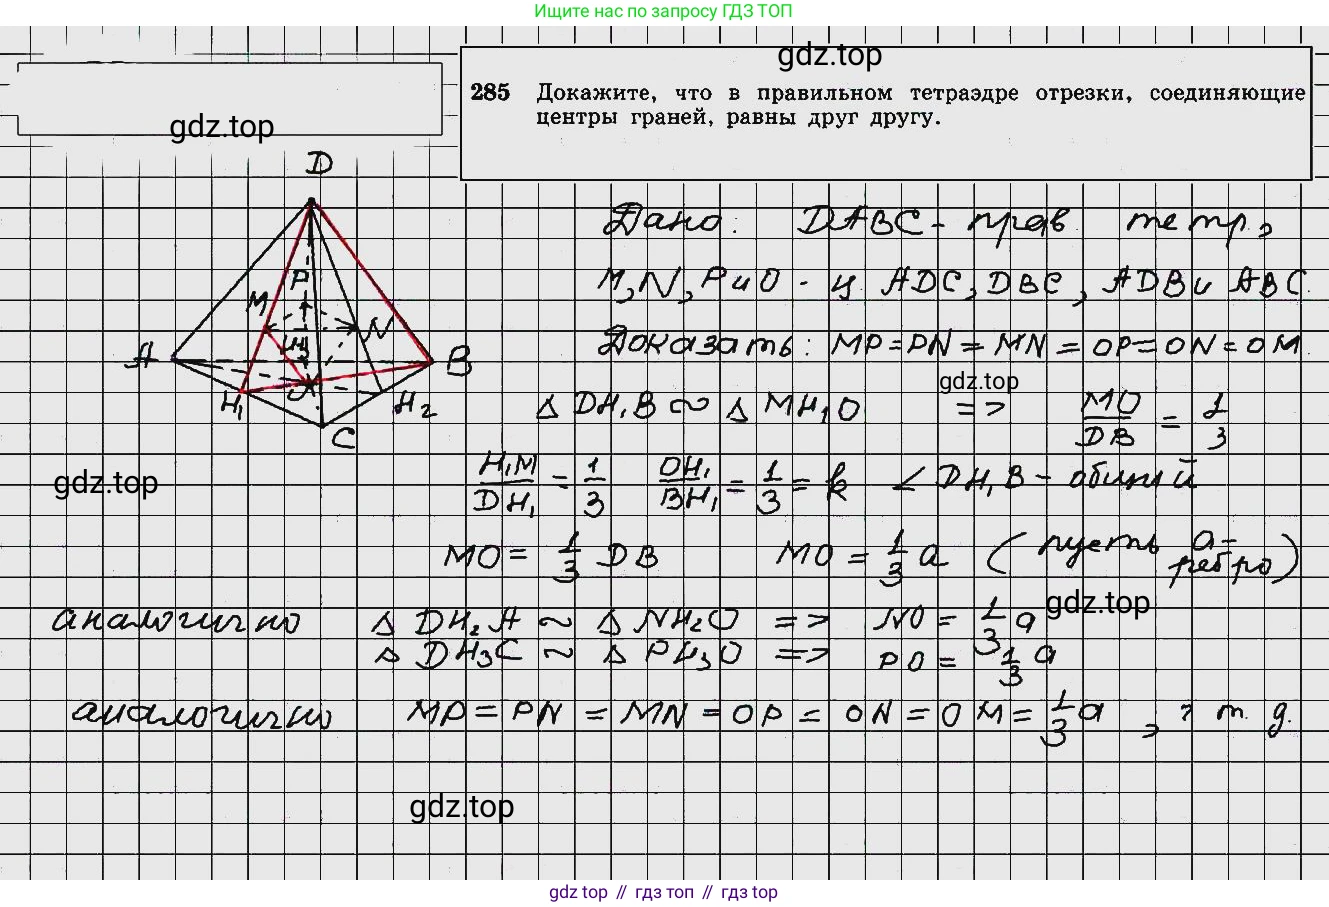 Ищите нас по запросу ГДЗ ТОП
gdz.top
285 Докажите, что в правильном тетраэдре отрезки, соединяющие
центры граней, равны друг другу.
gdz.top
D
P
M
N
H₃
A
B
O
H₁
H₂
C
Дано: DABC - прав тетр,
M, N, P и O - ц ADC, DBC, ADB и ABC.
Доказать: MP = PN = MN = OP = ON = OM.
gdz.top
△ DH₁B ∾ △ MH₁O => MO/DB = 1/3
H₁M/DH₁ = 1/3 OH₁/BH₁ = 1/3 = k ∠ DH₁B - общий
gdz.top
MO = 1/3 DB MO = 1/3 a (пусть a - ребро)
gdz.top
аналогично △ DH₂A ~ △ NH₂O => NO = 1/3 a
△ DH₃C ~ △ PH₃O => PO = 1/3 a
аналогично MP = PN = MN = OP = ON = OM = 1/3 a, ч т. д.
gdz.top
gdz top // гдз топ // gdz top